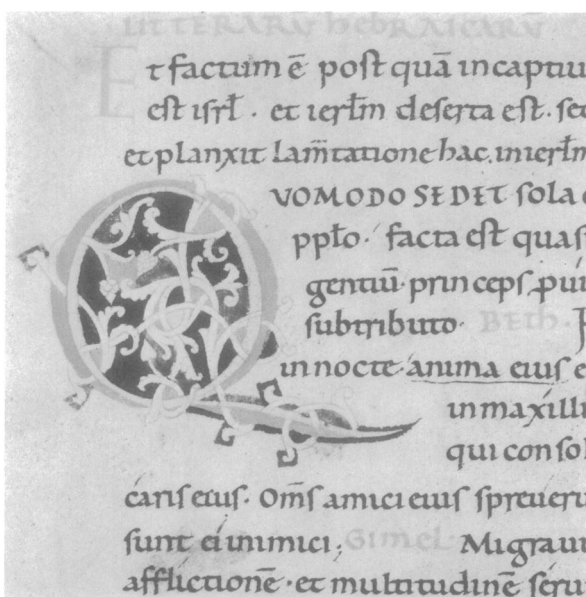 LITTERARŪ hEBRAICARŪ
Et factum ē postquā in captiu
est isrł · et ierłm deserta est · sed
et planxit lam̄tatione hac · in ierłm
QVOMODO SEDET sola
ppło · facta est quas
gentiū · princeps pui
sub tributo · BETh ·
in nocte · anima eius e
in maxilli
qui consol
caris eius · Om̄s amici eius spreueru
sunt ei inimici; GIMEL · Migraui
afflictionē · et multitudinē serui